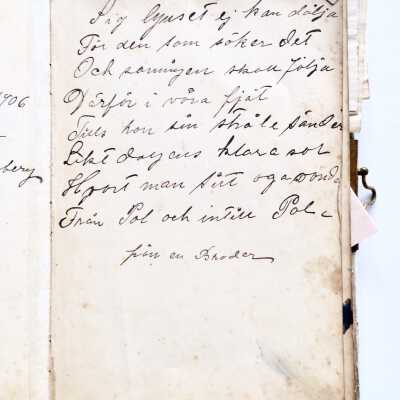 Sig ljuset ej kan dölja
För den som söker det
Och sanningen skall följa
1906
Därför i våra fjät
Tills hon sin stråle sänder
Likt dagens klara sol
berg
Hvart man sitt öga vända
Från Pol och intill Pol
från en Broder